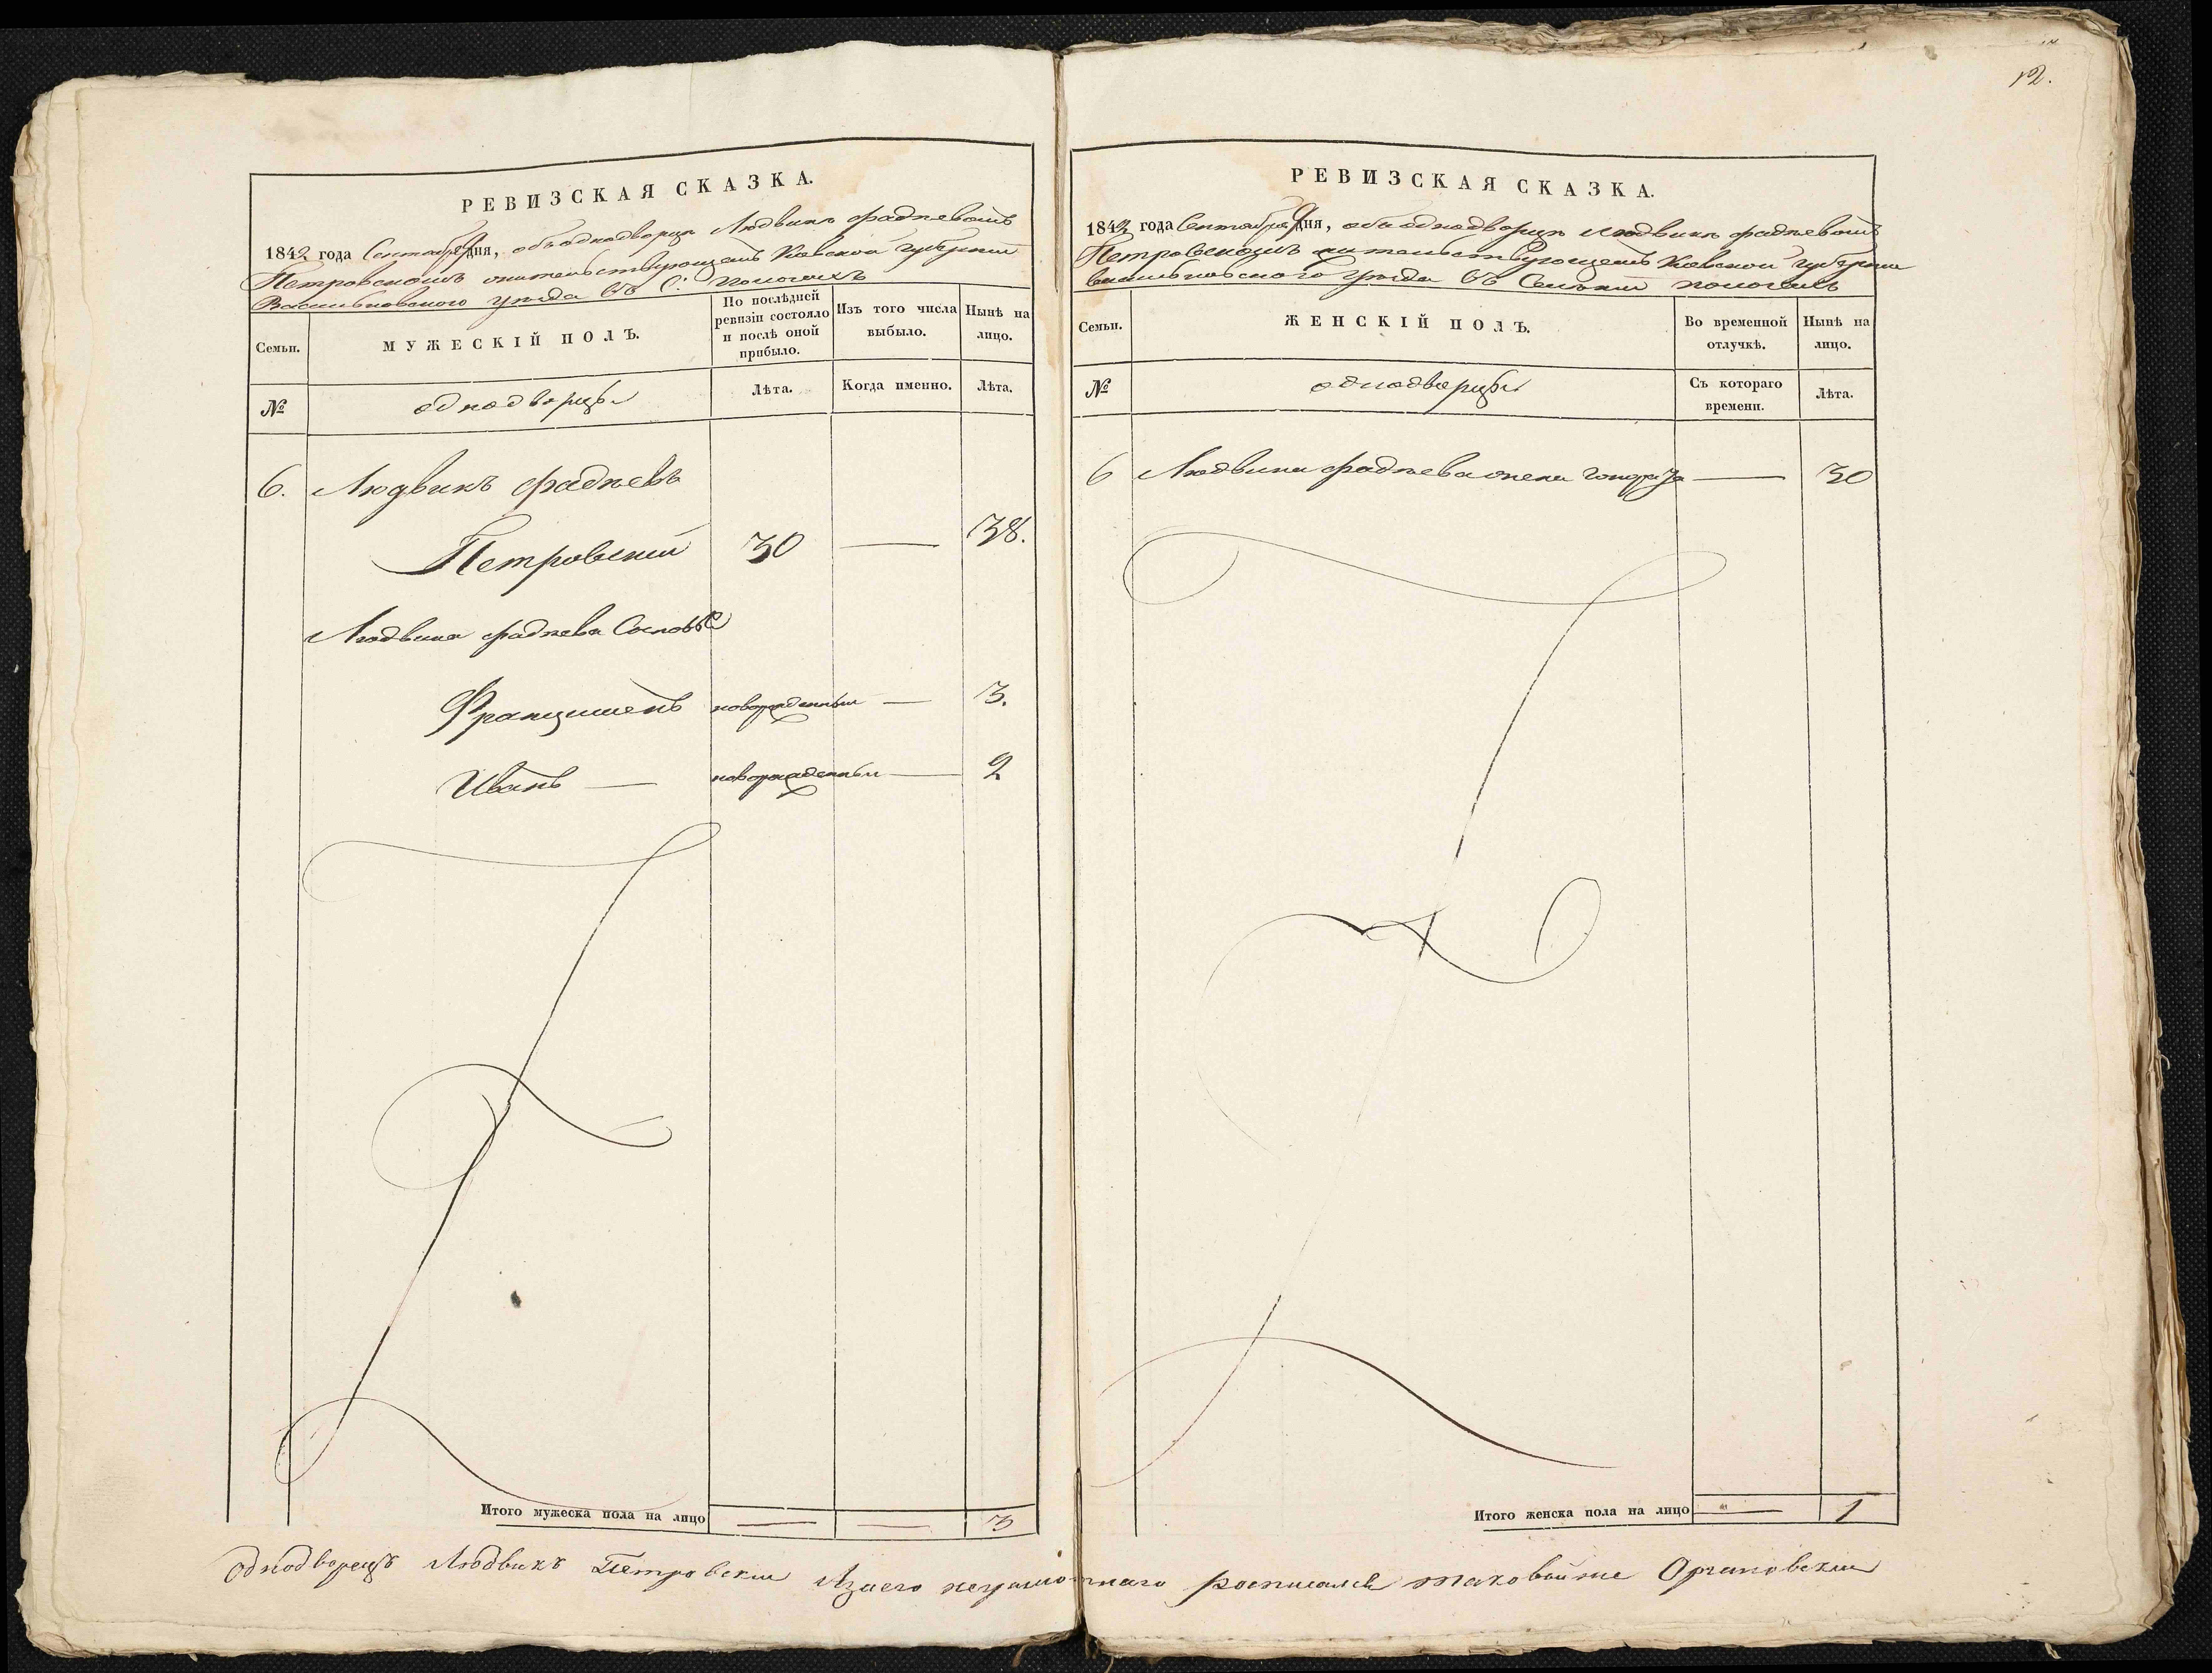 12.
РЕВИЗСКАЯ СКАЗКА.
1842 года Сентября 9 дня, объ однодворцѣ Людвикѣ Фадѣевомъ
Петровскомъ жительствующемъ Кіевской губерніи
Васильковскаго уѣзда въ С. Пологахъ
Семьи.
МУЖЕСКІЙ ПОЛЪ.
По послѣдней ревизіи состояло и послѣ оной прибыло.
Изъ того числа выбыло.
Нынѣ на лицо.
№
однодворцы
Лѣта.
Когда именно.
Лѣта.
6. Людвикъ Фадѣевъ
Петровскій 30 — 38.
Людвика Фадѣева Сыновья
Францишекъ новорожденный — 3.
Иванъ — новорожденный — 2
Итого мужеска пола на лицо — — 3
РЕВИЗСКАЯ СКАЗКА.
1842 года Сентября 9 дня, объ однодворцѣ Людвикѣ Фадѣевомъ
Петровскомъ жительствующемъ Кіевской губерніи
Васильковского уѣзда въ Селѣніи Пологахъ
Семьи.
ЖЕНСКІЙ ПОЛЪ.
Во временной отлучкѣ.
Нынѣ на лицо.
№
однодворцы
Съ котораго времени.
Лѣта.
6 Людвика Фадѣева жена — 30
Итого женска пола на лицо — 1
Однодворецъ Людвикъ Петровскій А за его неграмотнаго росписался таковый же